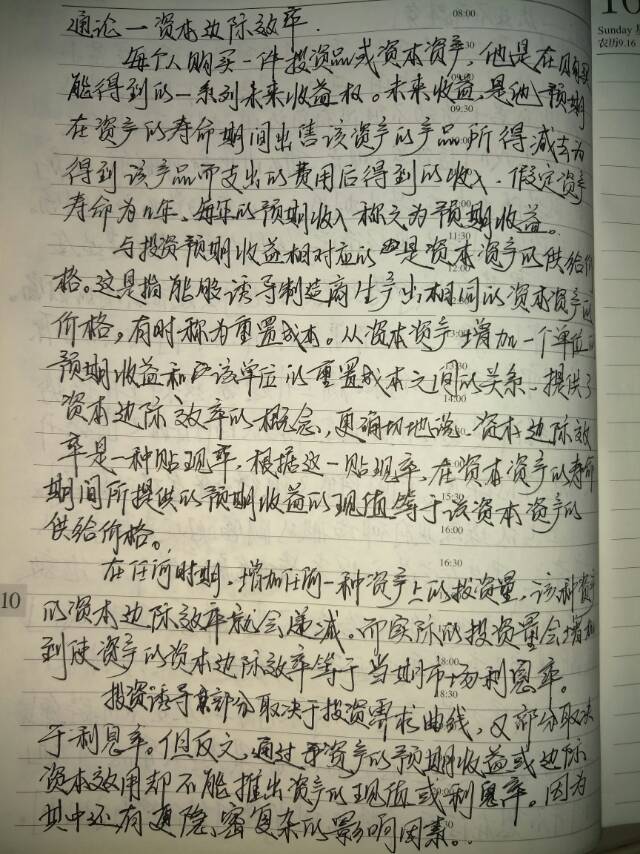 通论—资本边际效率.
08:00
10
Sunday
农历9.16
每个人购买一件投资品或资本资产,他是在购买
能得到的一系列未来收益权。未来收益,是他预期
09:30
在资产的寿命期间出售该资产的产品所得减去为
得到该产品而支出的费用后得到的收入.假定资产
寿命为n年、每年的预期收入称之为预期收益。
11:30
与投资预期收益相对应的是资本资产的供给价
格。这是指能够诱导制造商生产出相同的资本资产的
价格,有时称为重置成本。从资本资产增加一个单位的
预期收益和该单位的重置成本之间的关系,提供了
14:00
资本边际效率的概念,更确切地说.资本边际效
率是一种贴现率,根据这一贴现率,在资本资产的寿命
15:30
期间所提供的预期收益的现值等于该资本资产的
供给价格。
16:00
16:30
在任何时期,增加任何一种资产上的投资量,该种资产
10
的资本边际效率就会递减。而实际的投资量会增加
到使资产的资本边际效率等于当期市场利息率。
18:00
18:30
投资诱导部分取决于投资需求曲线,又部分取决
于利息率。但反之,通过资产的预期收益或边际
资本效用却不能推出资产的现值或利息率。因为
其中还有更隐密复杂的影响因素。